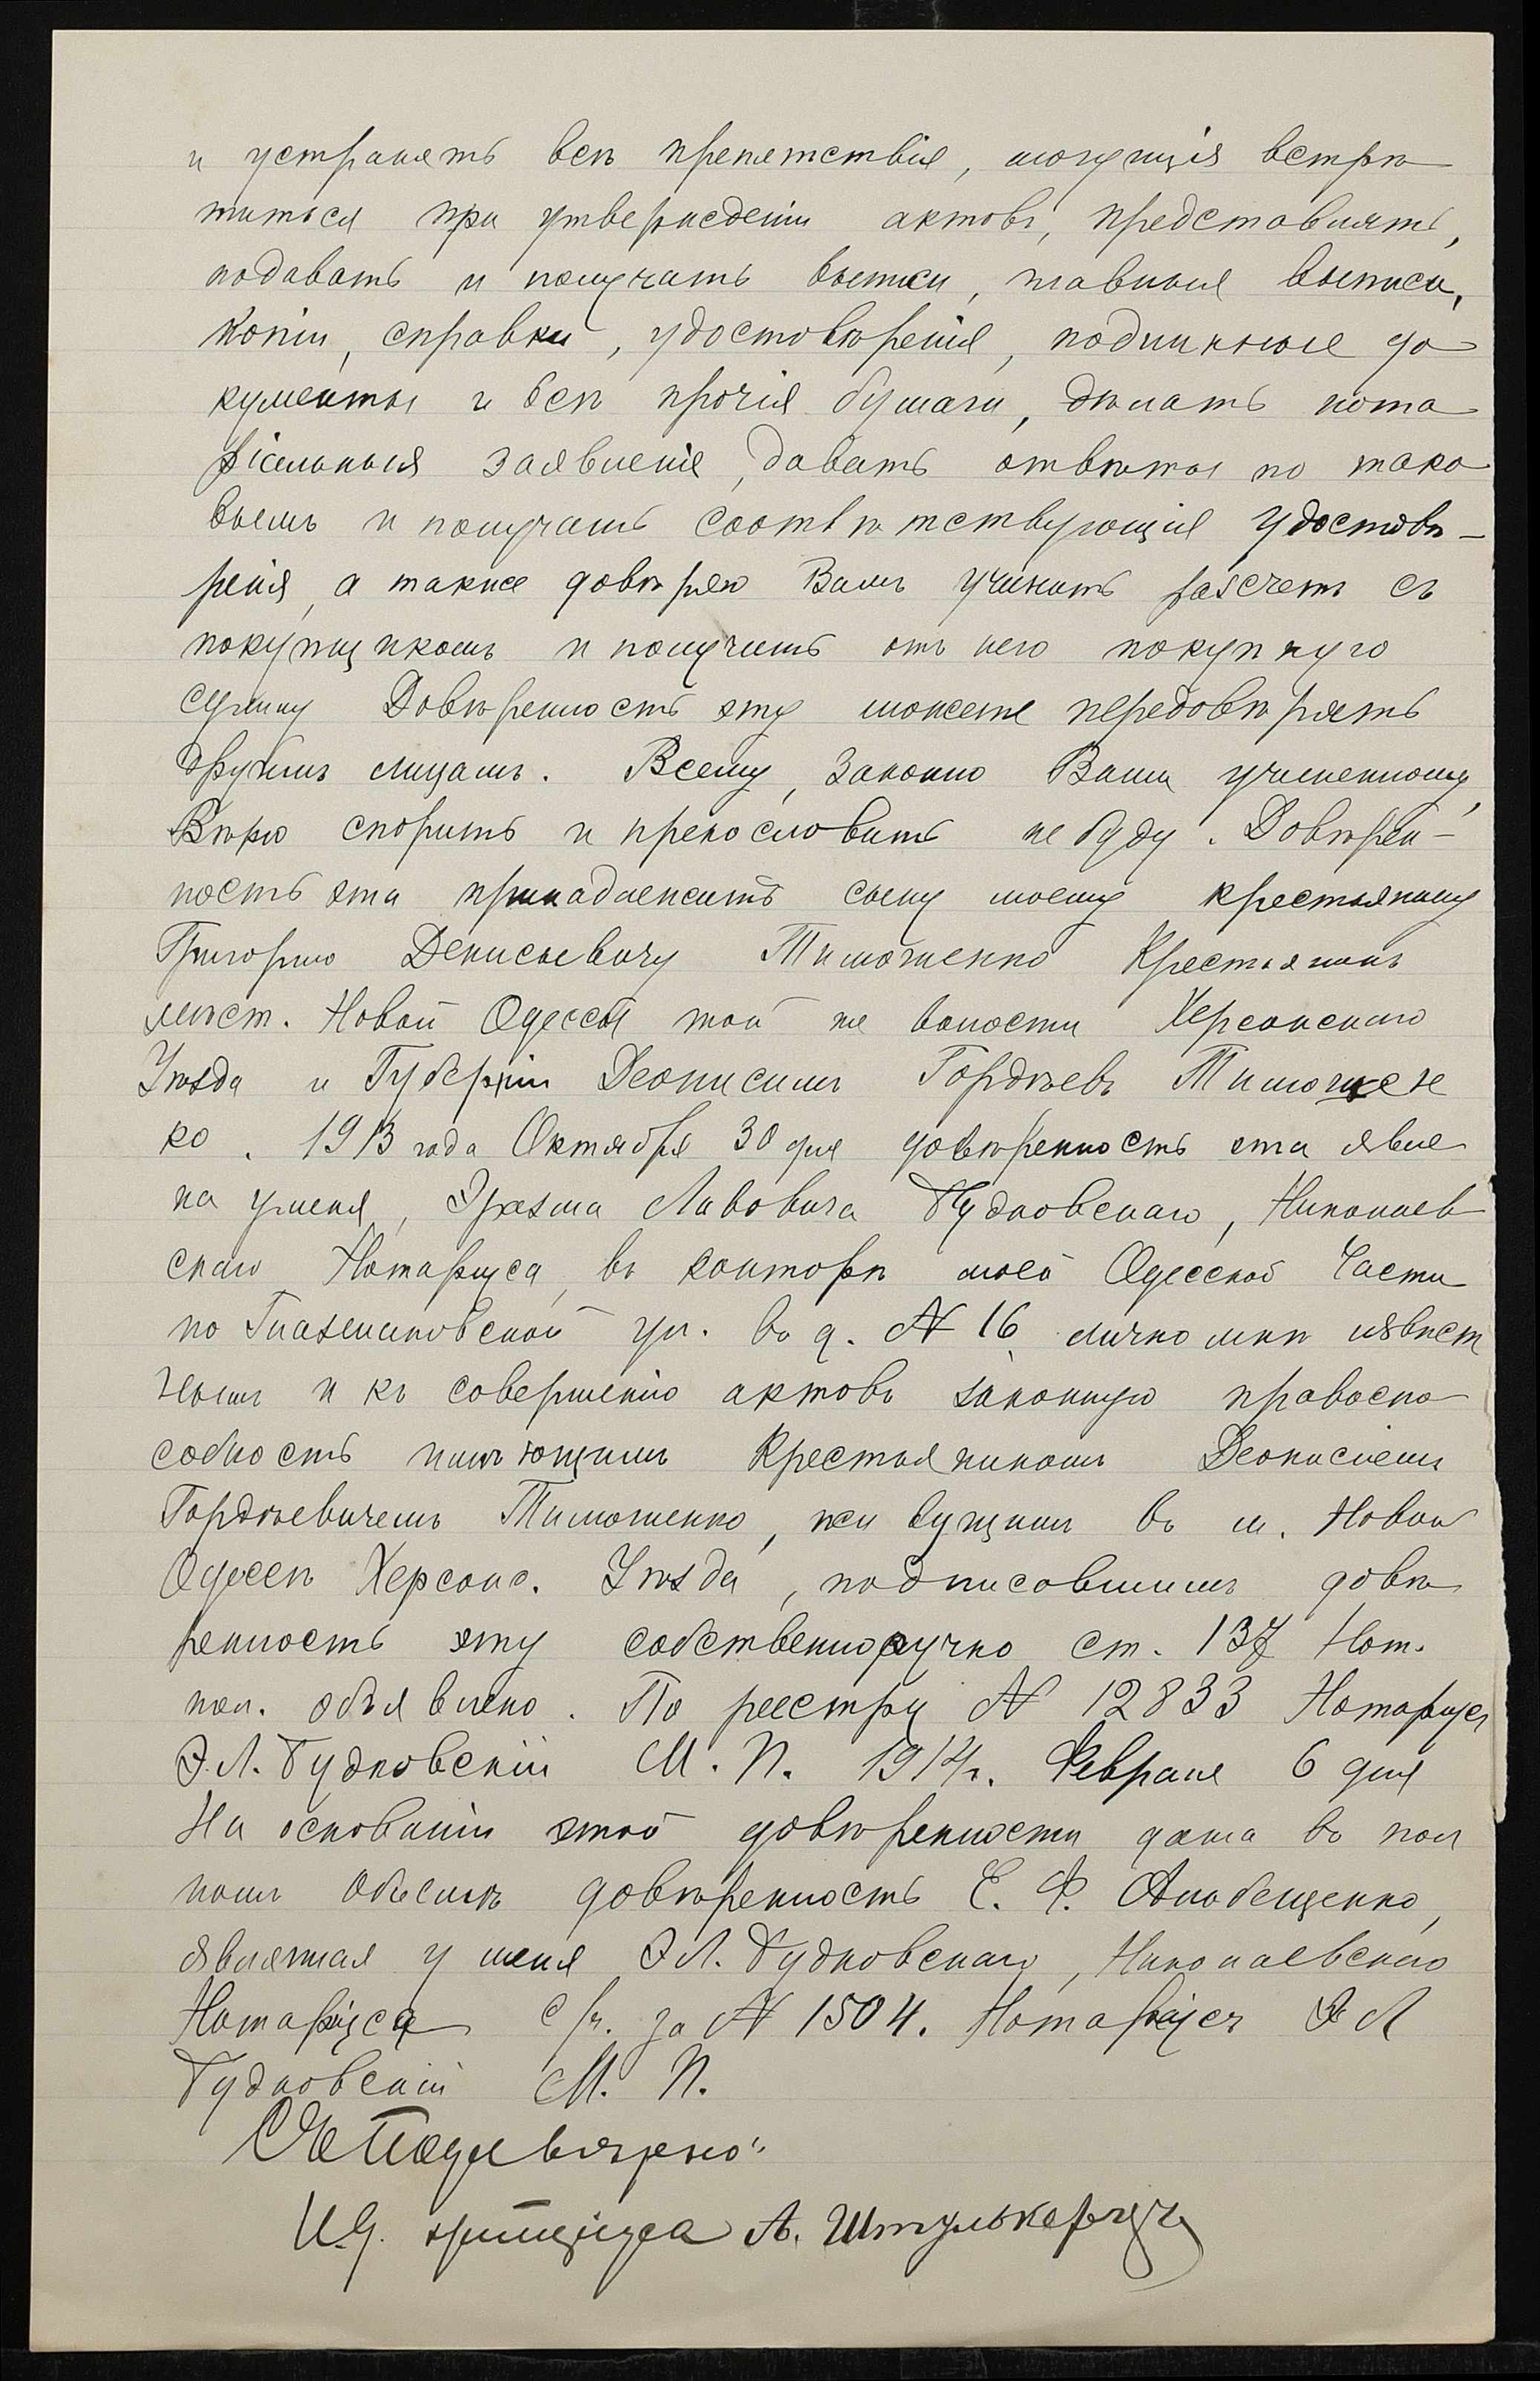 и устранять все препятствія, могущія встрѣ
титься при утвержденіи актовъ, представлять,
подавать и получать выписи, главныя выписи,
копіи, справки, удостовѣренія, подлинные до
кументы и все прочія бумаги, дѣлать нота
ріальныя заявленія, давать отвѣты по тако
вымъ и получать соотвѣтствующія удостовѣ-
ренія, а также довѣряю Вамъ учинить разсчетъ съ
покупщикомъ и получить отъ него покупную
сумму Довѣренность эту можете передовѣрять
другимъ лицамъ. Всему, законно Вами учиненному,
Вѣрю спорить и прекословить не буду. Довѣрен-
ность эта принадлежитъ сыну моему крестьянину
Григорію Денисьевичу Тимошенко Крестьянинъ
мѣст. Новой Одессы той же волости Херсонскаго
Уѣзда и Губерніи Деонисимъ Гордѣевъ Тимошен
ко. 1913 года Октября 30 дня довѣренность эта явле
на у меня, Эразма Львовича Будковскаго, Николаев
скаго Нотаріуса, въ конторѣ моей Одесской Части
по Глазенаповской ул. въ д. № 16 лично мнѣ извѣст
нымъ и къ совершенію актовъ законную правоспо
собность имѣющимъ Крестьяниномъ Деонисіемъ
Гордѣевичемъ Тимошенко, живущимъ въ м. Новой
Одессѣ Херсонс. Уѣзда, подписовшимъ довѣ
ренность эту собственноручно ст. 137 Нот.
пол. объявлено. По реестру № 12833 Нотаріусъ
Э.Л. Будковскій М. П. 1914г. Февраля 6 дня
На основаніи этой довѣренности дана въ пол
номъ объемѣ довѣренность Е. Ф.
явленная у меня Э Л. Будковскаго, Николаевскаго
Нотаріуса с/г. за № 1504. Нотаріусъ Э Л
Будковскій М. П.
И.д. нотаріуса А. Штулькерцъ